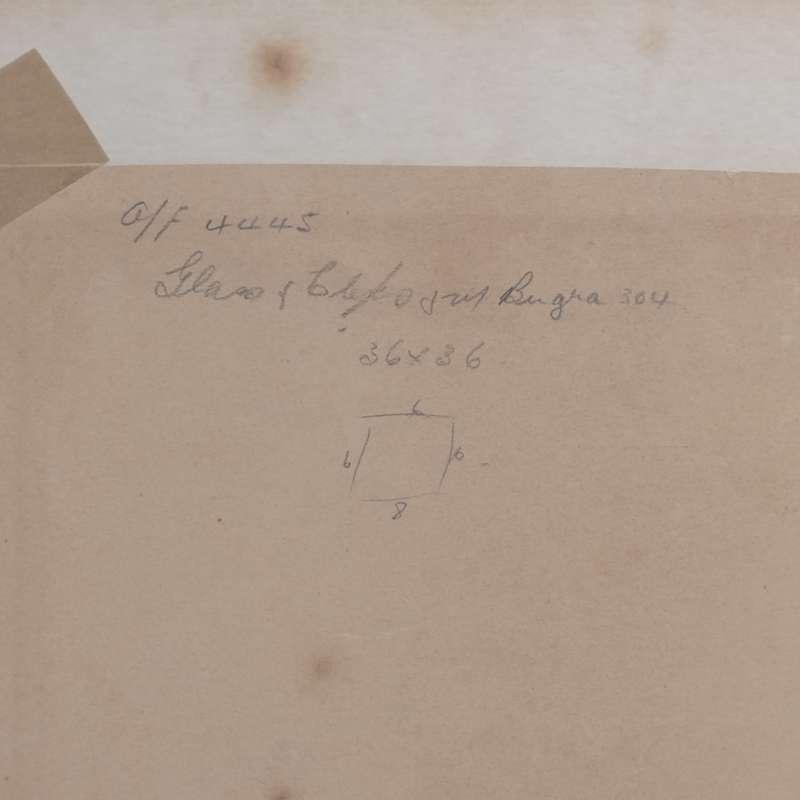 O/F 4445
Glass & Clips Bugra 304
36 x 36
6
6 6
8